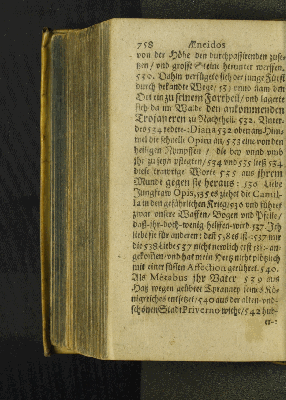 758 Æneidos
von der Höhe den durchpassirenden zuse-
tzen / und grosse Steine herunter werffen.
530. Dahin verfügete sich der junge Fürst
durch bekandte Wege / 531 unnd nam den
Ort ein zu seinem Vortheil / und lagerte
sich da im Walde den ankommenden
Trojanern zu Nachtheil. 532. Unter-
des 534 redete Diana 532 oben am Him-
mel die schnelle Opim an, 533 eine von den
heiligen Nymphen / die bey unnd umb
ihr zu seyn pflegten / 534 und 535 ließ 534
diese traurige Worte 535 aus ihrem
Munde gegen sie heraus: 536 Liebe
Jungfraw Opis, 535 es ziehet die Camil-
la in den gefährlichen Krieg / 536 und führet
zwar unsere Waffen / Bogen und Pfeile /
daß ihr doch wenig helffen wird. 537 Ich
liebe sie für anderen: den 538 es ist 537 mir
die 538 Liebe 537 nicht newlich erst 538 an-
gekommen / und hat mein Hertz nicht plötzlich
mit einer süssen Affection gerühret. 540.
Als Metabus ihr Vater 539 aus
Haß wegen geübter Tyranney seines Kö-
nigreiches entsetzet / 540 aus der alten und
schönen Stadt Priverno wiche / 542 hat
er